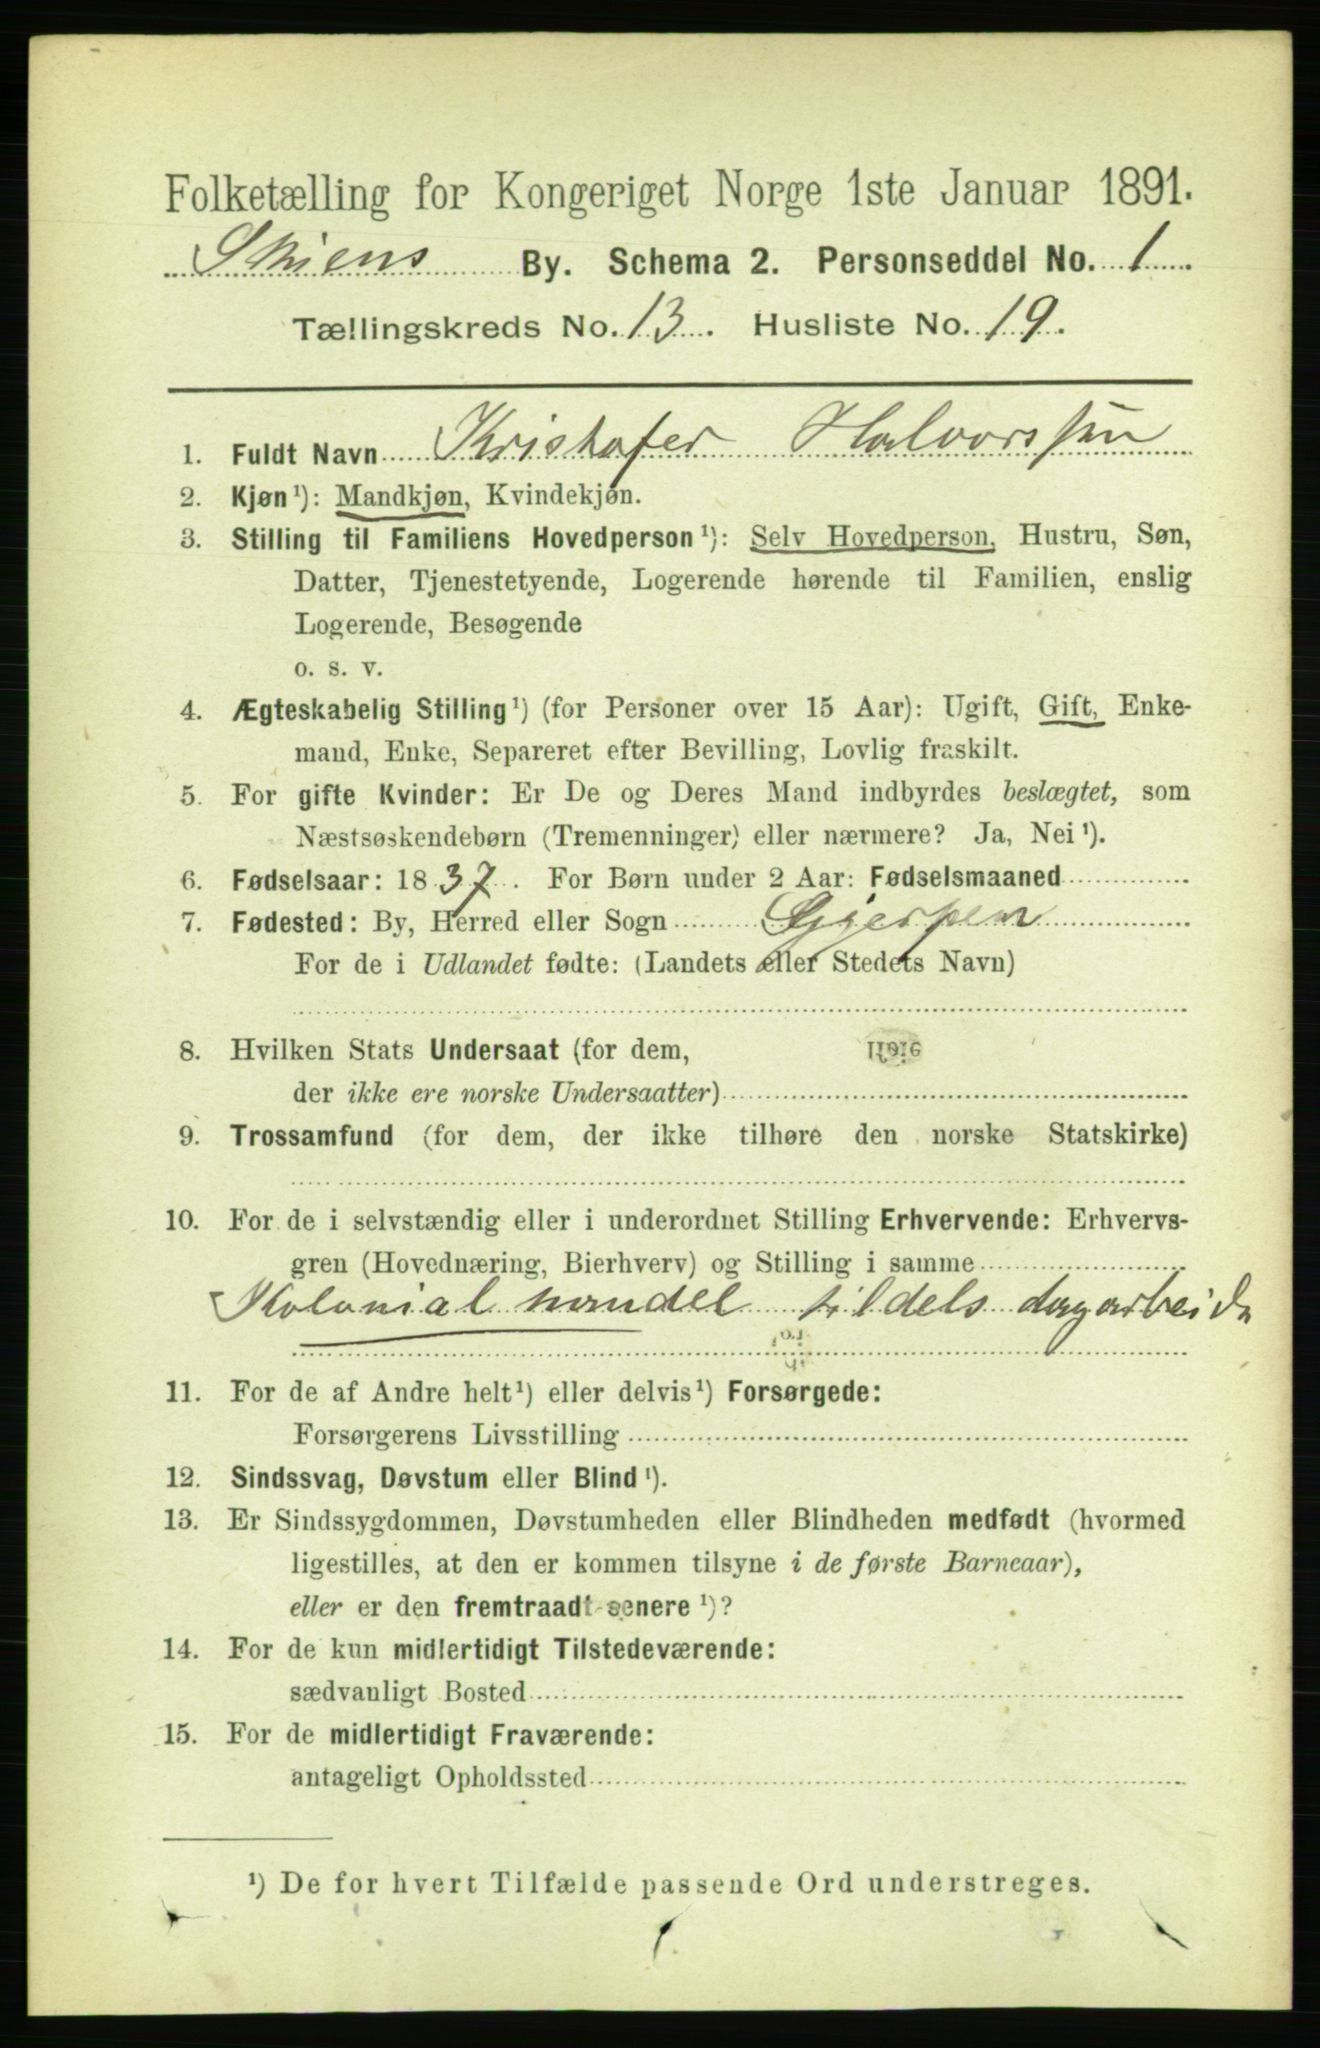 Folketælling for Kongeriget Norge 1ste Januar 1891.
Skiens By. Schema 2. Personseddel No. 1
Tællingskreds No. 13. Husliste No. 19.
1. Fuldt Navn Kristofer Halvorssen
2. Kjøn¹): Mandkjøn, Kvindekjøn.
3. Stilling til Familiens Hovedperson¹): Selv Hovedperson, Hustru, Søn,
Datter, Tjenestetyende, Logerende hørende til Familien, enslig
Logerende, Besøgende
o. s. v.
4. Ægteskabelig Stilling¹) (for Personer over 15 Aar): Ugift, Gift, Enke-
mand, Enke, Separeret efter Bevilling, Lovlig fraskilt.
5. For gifte Kvinder: Er De og Deres Mand indbyrdes beslægtet, som
Næstsøskendebørn (Tremenninger) eller nærmere? Ja, Nei¹).
6. Fødselsaar: 1837. For Børn under 2 Aar: Fødselsmaaned
7. Fødested: By, Herred eller Sogn Gjerpen
For de i Udlandet fødte: (Landets eller Stedets Navn)
8. Hvilken Stats Undersaat (for dem,
der ikke ere norske Undersaatter)
9. Trossamfund (for dem, der ikke tilhøre den norske Statskirke)
10. For de i selvstændig eller i underordnet Stilling Erhvervende: Erhvervs-
gren (Hovednæring, Bierhverv) og Stilling i samme
Kolonial handel tildels dagarbeide
11. For de af Andre helt¹) eller delvis¹) Forsørgede:
Forsørgerens Livsstilling
12. Sindssvag, Døvstum eller Blind¹).
13. Er Sindssygdommen, Døvstumheden eller Blindheden medfødt (hvormed
ligestilles, at den er kommen tilsyne i de første Barneaar),
eller er den fremtraadt senere¹)?
14. For de kun midlertidigt Tilstedeværende:
sædvanligt Bosted
15. For de midlertidigt Fraværende:
antageligt Opholdssted
¹) De for hvert Tilfælde passende Ord understreges.